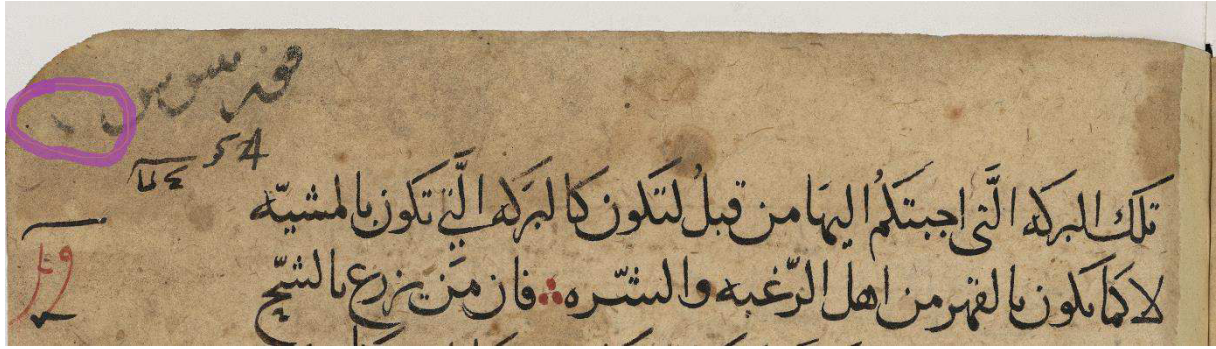 54
تلك البركه الَّتى اجبتكم اليها من قبلُ لتكون كالبركه الَّتي تكون بالمشيّه
لا كما يكون بالقهر من اهل الرّغبه والشّره فان مَن يزرع بالشّحّ